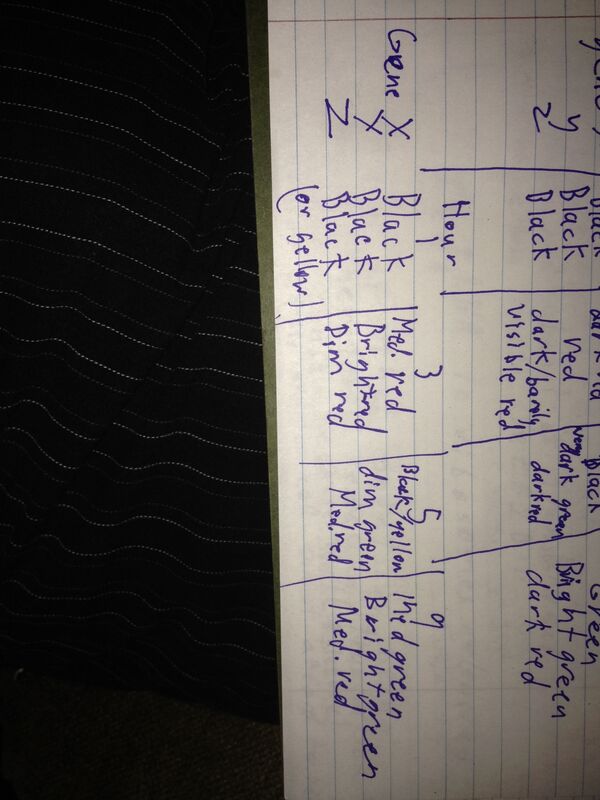 Black Black Green
y Black red very dark green Bright green
z Black dark/barily darkred dark red
visible red
Hour
1 3 5 9
Gene X Black Med. red Black/yellow Med green
Y Black Bright red dim green Bright green
Z Black Dim red Med red Med. red
(or yellow)